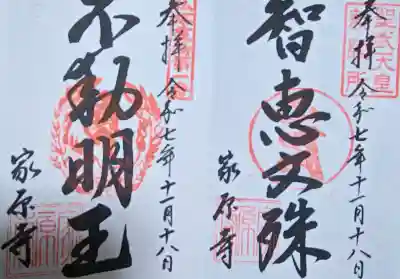 奉拝 令和七年十一月十八日
智恵文殊
家原寺
奉拝 令和七年十一月十八日
不動明王
家原寺